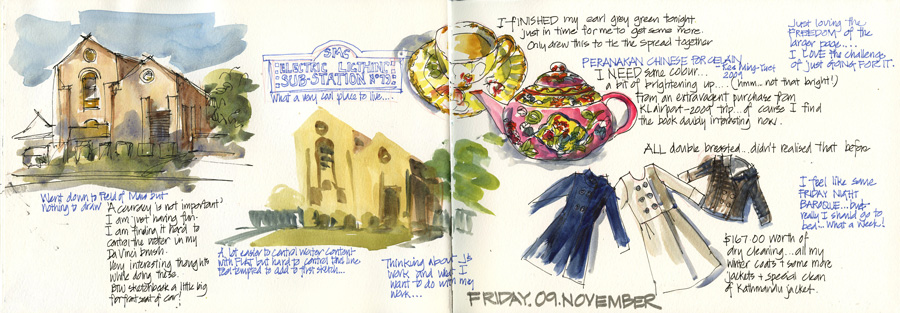 SMC
ELECTRIC LIGHTING
SUB-STATION No 192
What a very cool place to live....
Went down to Field of Mars but
nothing to draw
'Accuracy is not important'
I am just having fun.
I am finding it hard to
control the water in my
Da Vinci brush.
Very interesting thoughts
while doing these.
BTW sketchbook a little big
for front seat of car!
A lot easier to control water content
with FLAT but hard to control the line
tempted to add to first sketch...
Thinking about JJs
work and what I
want to do with my
work...
I FINISHED my earl grey green tonight
Just in time for me to get some more.
Only drew this to tie the spread together
PERANAKAN CHINESE PORCELAIN
2009
I NEED some colour...
a bit of brightening up.... (hmm.. not that bright!)
From an extravagent purchase from
KL Airport - 2009 trip.. of course I find
the book doubly interesting now.
Just loving the
FREEDOM of the
larger page....
I LOVE the challenge
of just going FOR IT.
ALL double breasted... didn't realised that before
I feel like some
FRIDAY NIGHT
BAROQUE... but
really I should go to
bed... What a week!
$167.00 worth of
dry cleaning... all my
winter coats + some more
jackets + special clean
of Kathmandu jacket.
FRIDAY.09.NOVEMBER